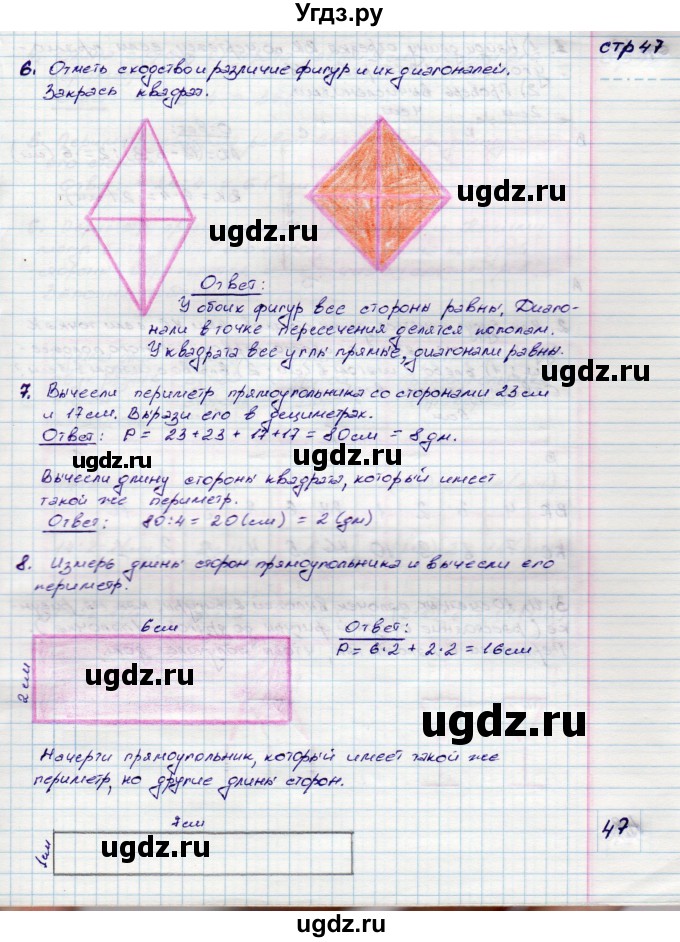 Угдз.ру
стр 47
6. Отметь сходство и различие фигур и их диагоналей.
Закрась квадрат.
ugdz.ru
ugdz.ru
Ответ:
У обоих фигур все стороны равны, Диаго-
нали в точке пересечения делятся пополам.
У квадрата все углы прямые, диагонали равны.
ugdz.ru
7. Вычесли периметр прямоугольника со сторонами 23 см
и 17 см. Вырази его в дециметрах.
Ответ: Р = 23+23 + 17+17 = 80 см = 8 дм.
ugdz.ru
ugdz.ru
Вычесли длину стороны квадрата, который имеет
такой же периметр.
Ответ: 80:4 = 20 (см) = 2 (дм)
8. Измерь длины сторон прямоугольника и вычесли его
периметр.
6 см
2 см
ugdz.ru
Ответ:
Р = 6·2 + 2·2 = 16 см
ugdz.ru
Начерти прямоугольник, который имеет такой же
периметр, но другие длины сторон.
7 см
1 см
ugdz.ru
ugdz.ru
47
ugdz.ru